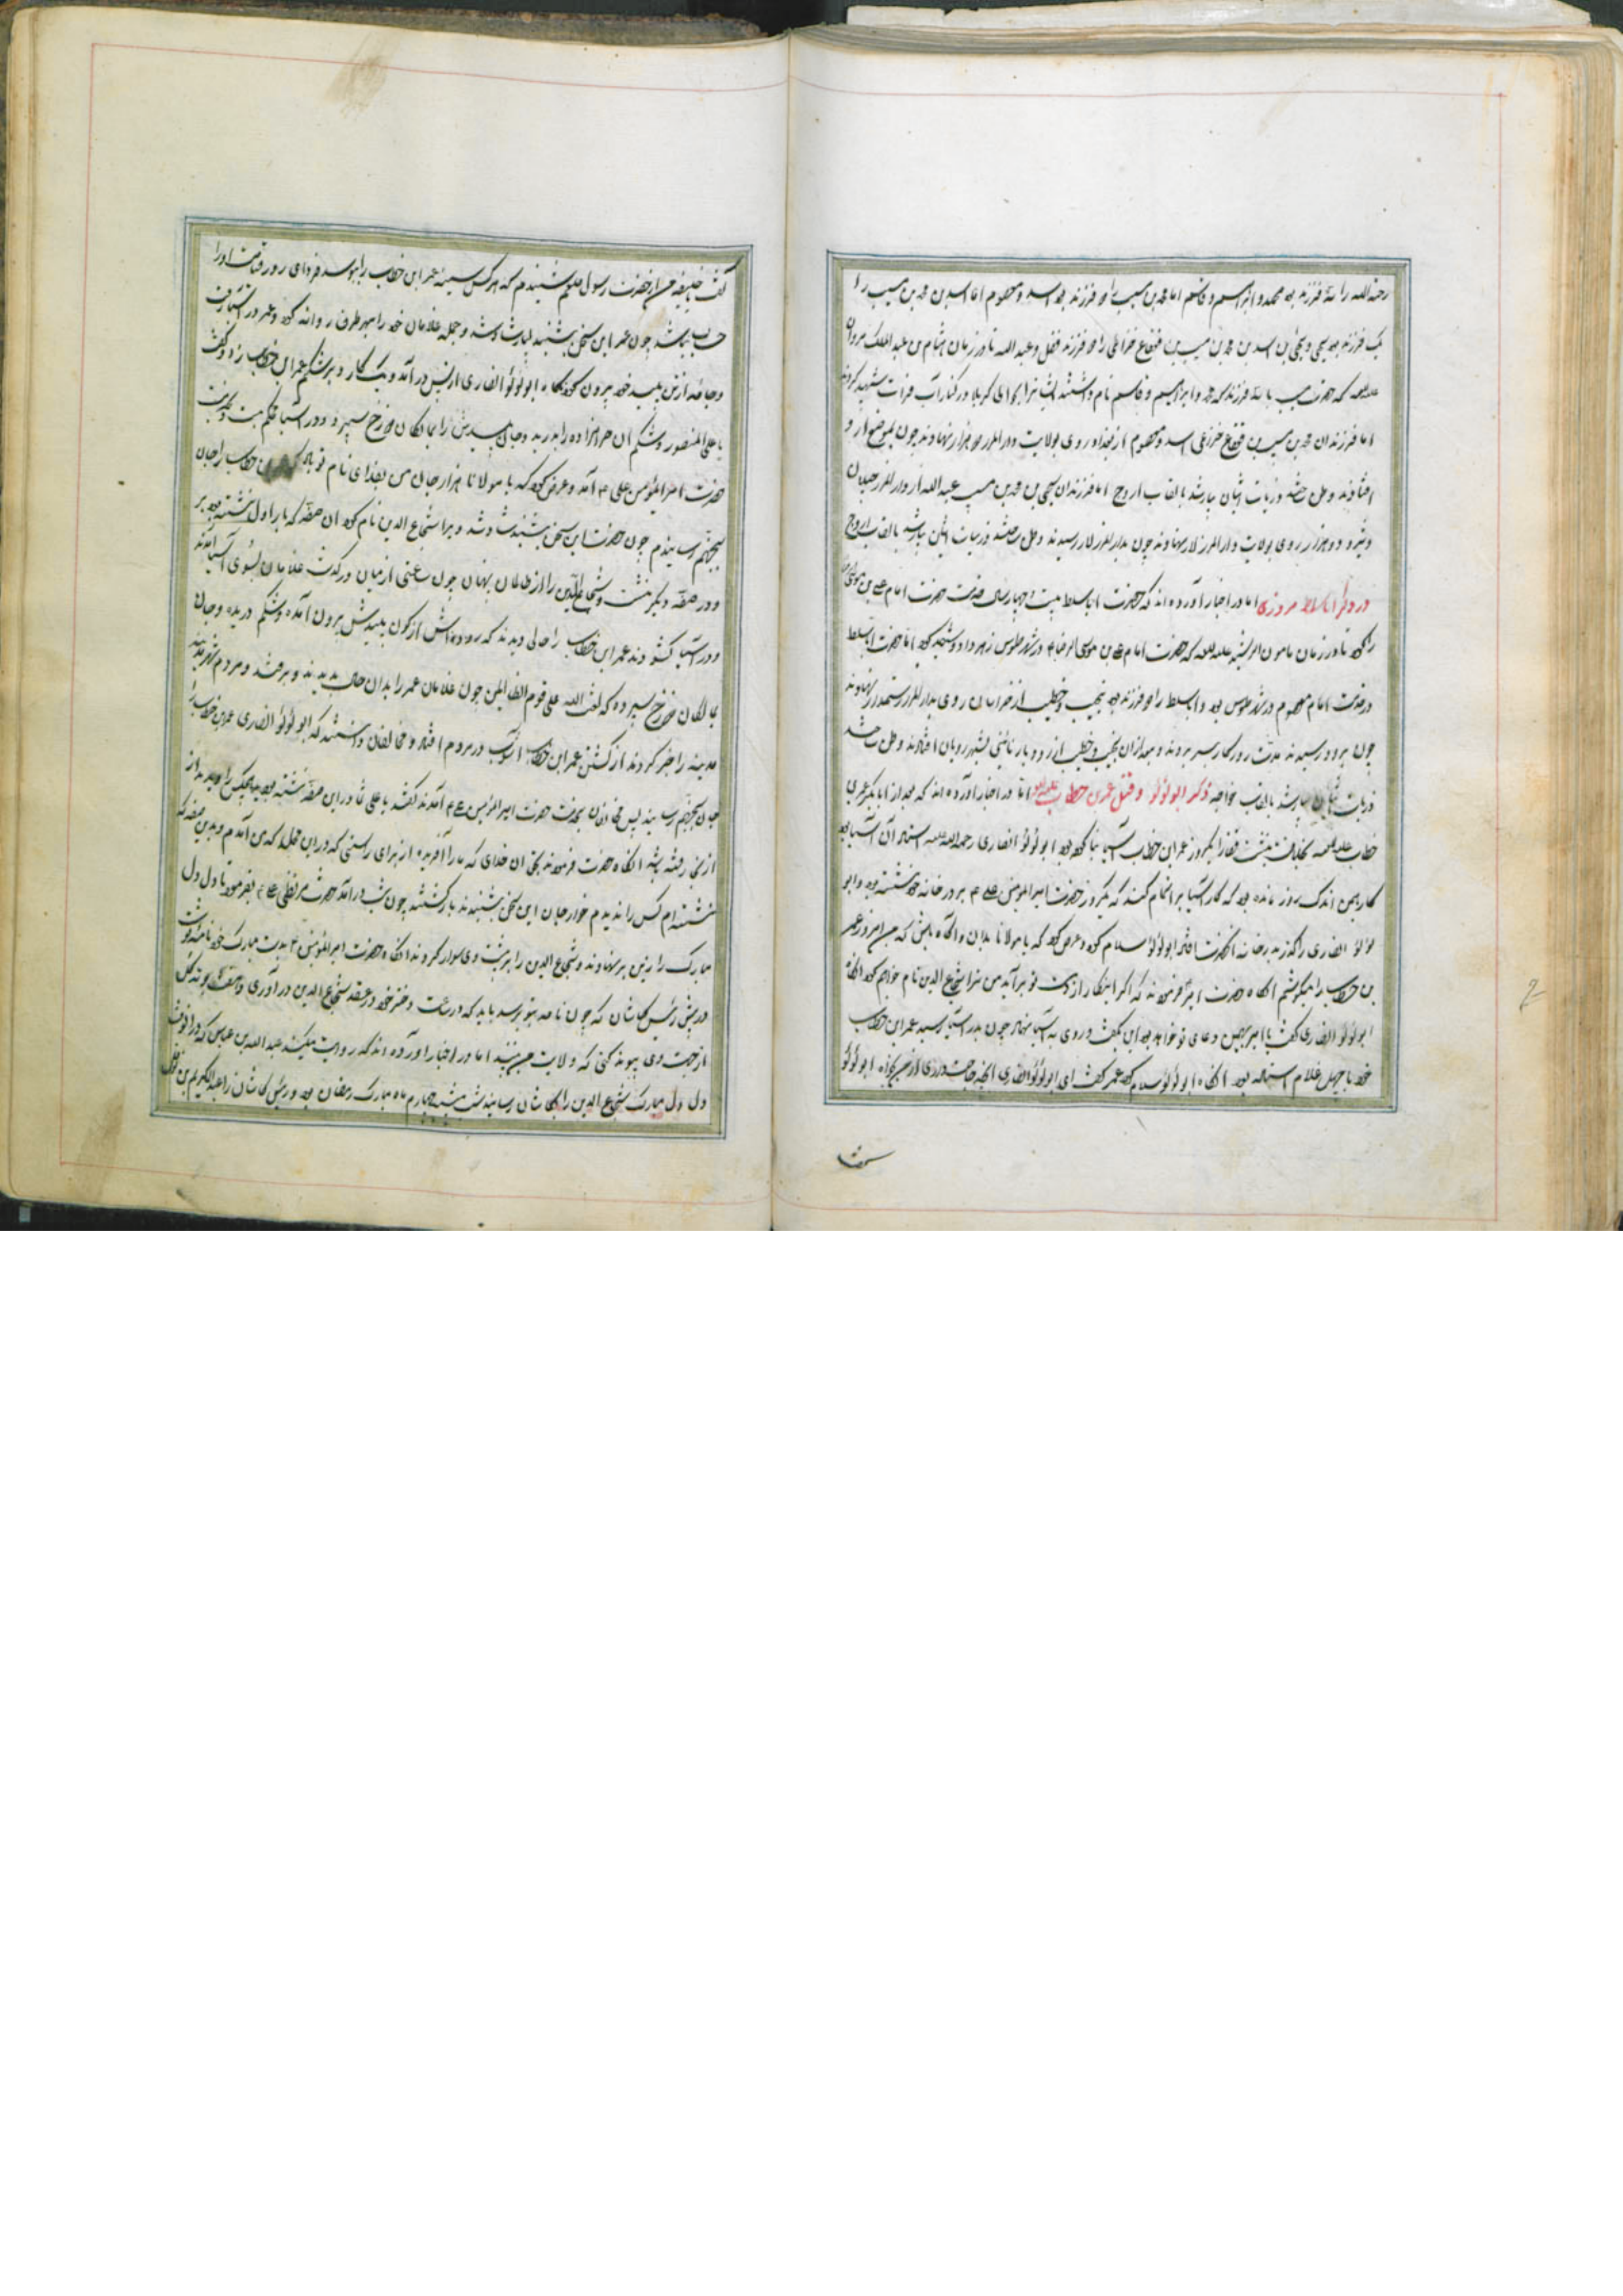 رحمة الله را سه فرزند بود محمد و ابراهیم و قاسم اما محمد بن مسیب را دو فرزند بود اسد و معصوم اما اسد بن محمد بن مسیب را
یک فرزند بود یحیی و یحیی بن اسد بن محمد بن مسیب بن قعقاع خزاعی را دو فرزند فضل و عبد الله تا در زمان هشام بن عبد الملک مروان
علیه اللعنه که حضرت مسیب با سه فرزند که محمد و ابراهیم و قاسم نام داشتند ایشانرا بحوالی کربلا در کنار آب فرات شهید کردند
اما فرزندان محمد بن مسیب بن قعقاع خزاعی اسد و معصوم از بغداد روی بولایت دار المرز نهادند چون بموضع
افتادند و ملک شد و ذریات ایشان باشد بالقاب اروج اما فرزندان یحیی بن محمد بن مسیب عبد الله از دار المرز
روی بولایت دار المرز لار نهادند چون بدار المرز لار رسیدند ذریات ایشان باشد بالقاب اروج
در ذکر اباسلط مروزی اما در اخبار آورده اند که حضرت اباسلط بیست و چهار سال خدمت حضرت امام علی بن موسی
را کرد تا در زمان مامون الرشید علیه اللعنه که حضرت امام علی بن موسی الرضا را در شهر طوس زهر داد و شهید کرد اما حضرت اباسلط
در خدمت امام معصوم در شهر طوس بود و اباسلط را دو فرزند بود نجیب و خطیب از خراسان روی بدار المرز رستمدار نهادند
چون برود رسیدند مدت روزگار بسر بردند و بعد از آن نجیب و خطیب از رود بار شهر رویان افتادند
ذریات ایشان باشد بالقاب خواجه ذکر ابولولو و قتل عمر بن خطاب علیه اما در اخبار آورده اند که بعد از ابابکر عمر بن
خطاب علیه اللعنه بخلافت بنشست قضا را یکروز عمر ابن خطاب آسیا بنا کرده بود ابو لؤلؤ انصاری رحمة الله علیه استاد آن آسیا بود
کار همین اندک روز مانده بود که کار آسیا سرانجام کند که یکروز حضرت امیر المؤمنین علی بر در خانه خود نشسته بود و ابو
لؤلؤ انصاری را گذر بدر خانه آنحضرت افتاد ابو لؤلؤ سلام کرد و عرض کرد که یا مولانا بدان و آگاه باش که من امروز عمر
بن خطاب را میکشم آنگاه حضرت امیر فرمودند که اگر اینکار از دست تو برآید من ترا شجاع الدین نام خواهم کرد آنگاه
ابو لؤلؤ انصاری گفت یا امیر همین دعای تو خواهد بود این بگفت و روی به آسیا نهاد چون بدر آسیا رسید عمر ابن خطاب
خود با چهل غلام استاده بود آنگاه ابو لؤلؤ سلام کرد عمر گفت ای ابو لؤلؤ انصاری آنچه حاجت داری از من بخواه ابو لؤلؤ
گفت یا خلیفه من از حضرت رسول صلعم شنیدم که هر کس سینه عمر ابن خطاب را ببوسد فردای روز قیامت او را
حساب نباشد چون عمر این سخن بشنید بسیار شاد شد و جمله غلامان خود را بهر طرف روانه کرد و عمر در آسیا رفت
و جامه از تن پلید خود بیرون کرد آنگاه ابو لؤلؤ انصاری از پس درآمد و یک کارد بر شکم عمر ابن خطاب زد و گفت
یا علی المنصور و شکم آن حرامزاده را بدرید و جان پلیدش را بمالکان دوزخ سپرد و در آسیا محکم ببست و بخدمت
حضرت امیر المؤمنین علی آمد و عرض کرد که یا مولانا هزار جان من بفدای نام تو باد که عمر بن خطاب را جان
بجهنم رسانیدم چون حضرت این سخن بشنید شاد شد و مرا شجاع الدین نام کرد آن صفه که بار اول نشسته بود بر
و در صفه دیگر بنشست و شجاع الدین را از ظالمان پنهان چون ساعتی از میان درگذشت غلامان بسوی آسیا آمدند
و در آسیا گشودند عمر ابن خطاب را حالی دیدند که روده اش از کون پلیدش بیرون آمده و شکم دریده و جان
بمالکان دوزخ سپرده که لعنت الله علی قوم الظالمین چون غلامان عمر را بدان حال بدیدند و مردم شهر مدینه
مدینه را خبر کردند از کشتن عمر ابن خطاب آشوب در مردم افتاد و مخالفان دانستند که ابو لؤلؤ انصاری عمر بن خطاب را
جان بجهنم رسانید پس مخالفان بخدمت حضرت امیر المؤمنین علی آمدند گفتند یا علی شما در این صفه نشسته بودید هیچکس را دیدید از
اینجا رفته باشد آنگاه حضرت فرمودند بحق آن خدای که ما را آفرید از برای راستی که در این محل که من آمدم و بدین صفه که
نشسته ام کس را ندیدم خوارجان این سخن بشنیدند باز گشتند چون شب درآمد حضرت مرتضی علی بفرمود تا دل دل
مبارک را زین بر نهادند و شجاع الدین را بر پشت وی سوار کردند آنگاه حضرت امیر المؤمنین بدست مبارک خود نامه نوشت
در پیش رئیس کاشان که چون نامه بتو برسد باید که در ساعت دختر خود در عقد شجاع الدین در آوری
از جهت وی پیوند کنی که ولایت من بیند اما در اخبار آورده اند که روایت میکند عبد الله بن عباس که در آنوقت
دل دل مبارک شجاع الدین را بکاشان رسانید شب شنبه چهارم ماه مبارک رمضان بود و رئیس کاشان را عبد الکریم بن